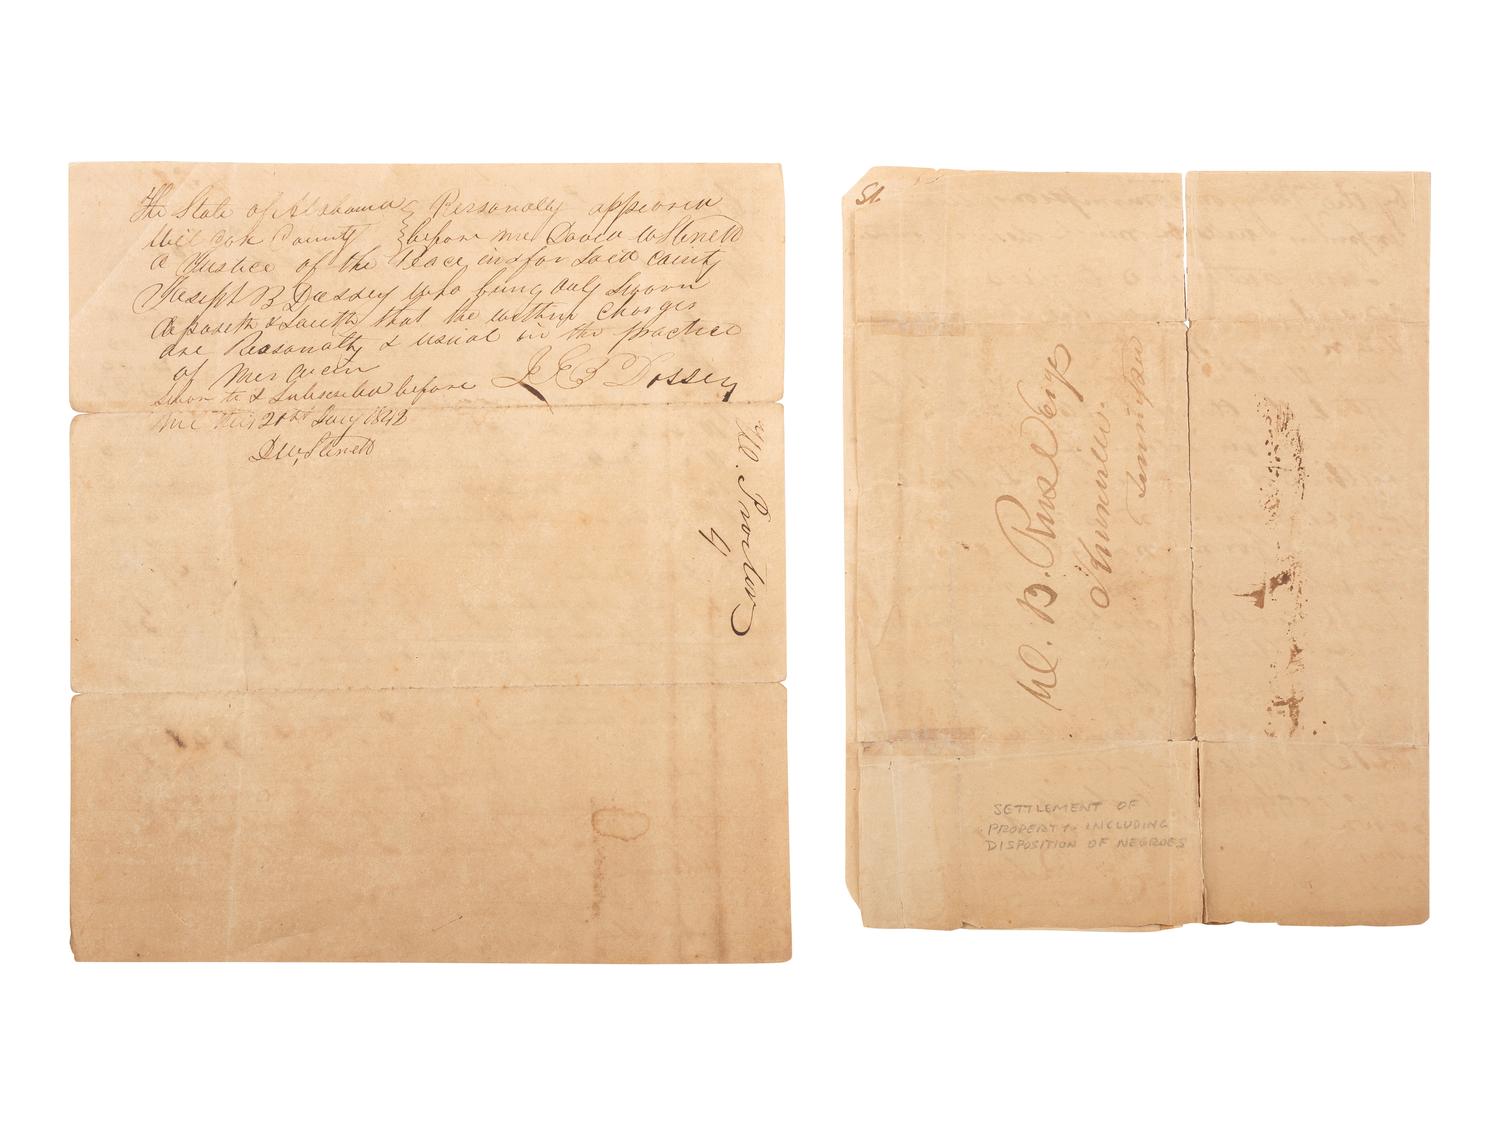 The State of Alabama } Personally appeared
Wilcox County } before me David W Sterett
a Justice of the Peace in & for said County
Joseph B Dossey who being duly Sworn
deposeth & saith that the within Charges
are Reasonable & usual in the practice
of Medicin
Sworn to & Subscribed before J E B Dossey
me this 21st Jany 1842
D W Sterett
Proctor
4
St.
B.
Knoxville
Tennessee
SETTLEMENT OF
PROPERTY INCLUDING
DISPOSITION OF NEGROES